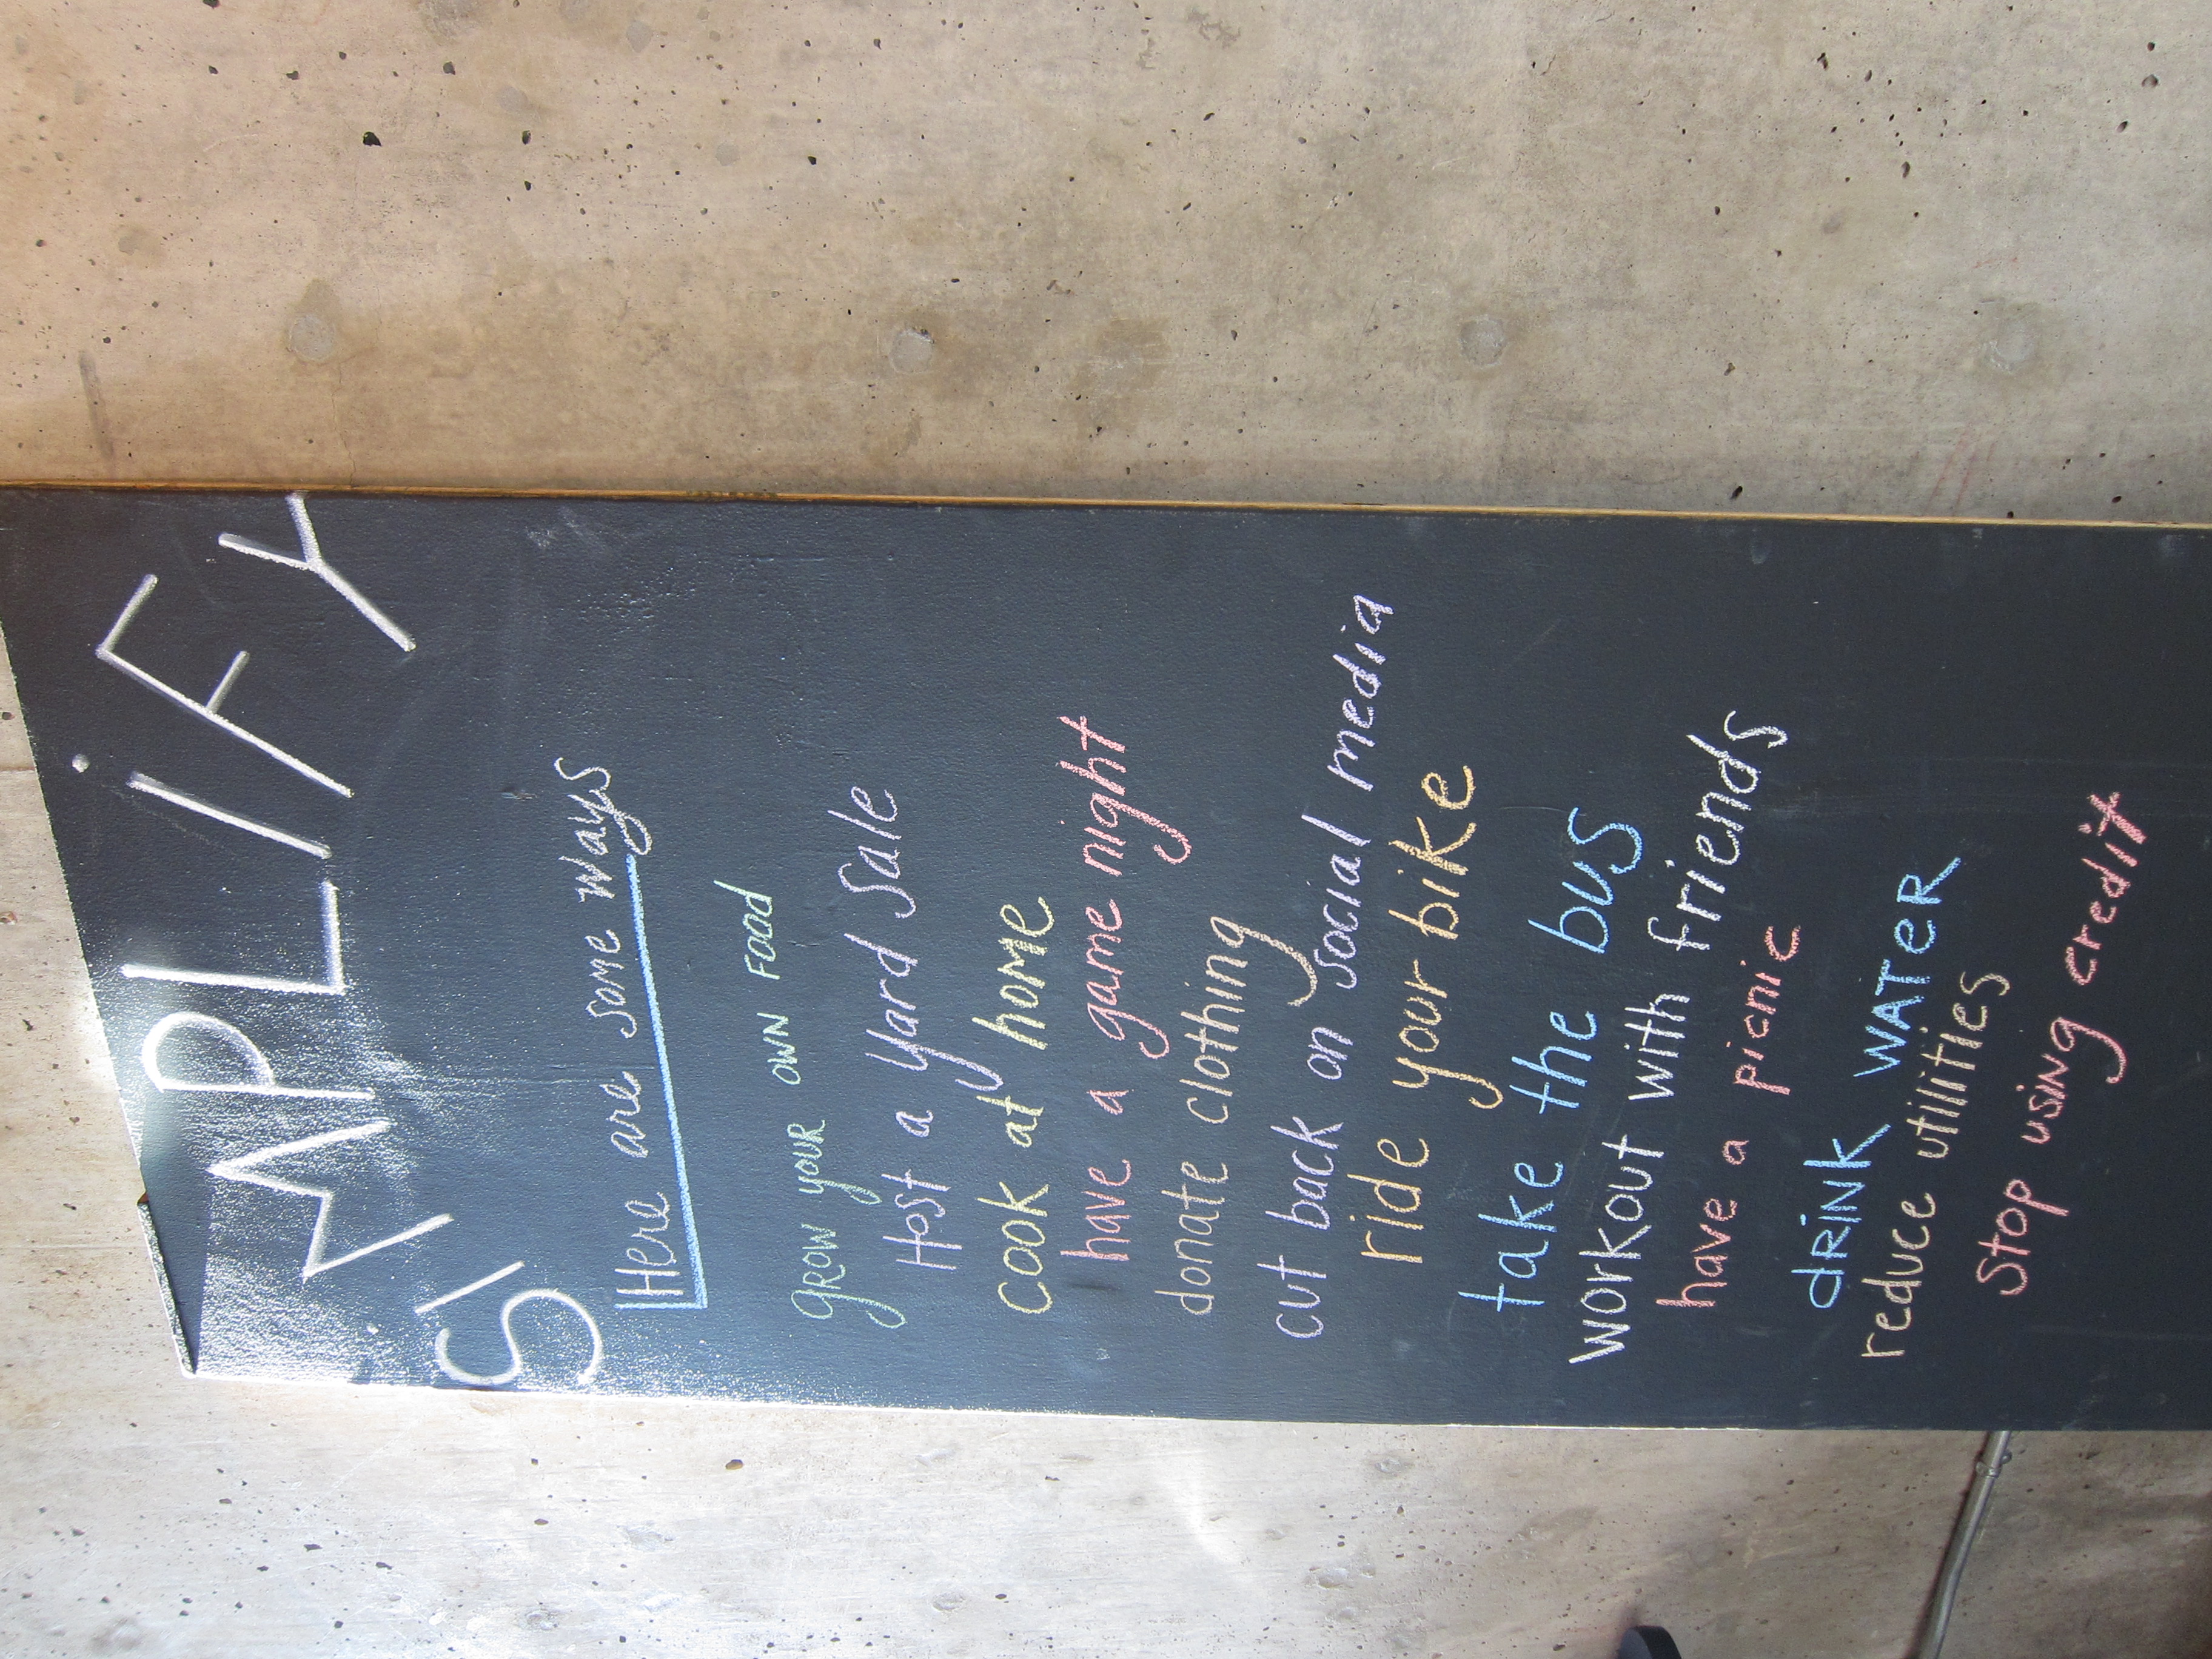 SiMPLiFY
Here are some ways
gROW YOUR OWN FOOd
Host a yard Sale
cook at home
have a game night
donate clothing
cut back on social media
ride your bike
take the bus
workout with friends
have a picnic
dRiNk WATeR
reduce utilities
Stop using credit